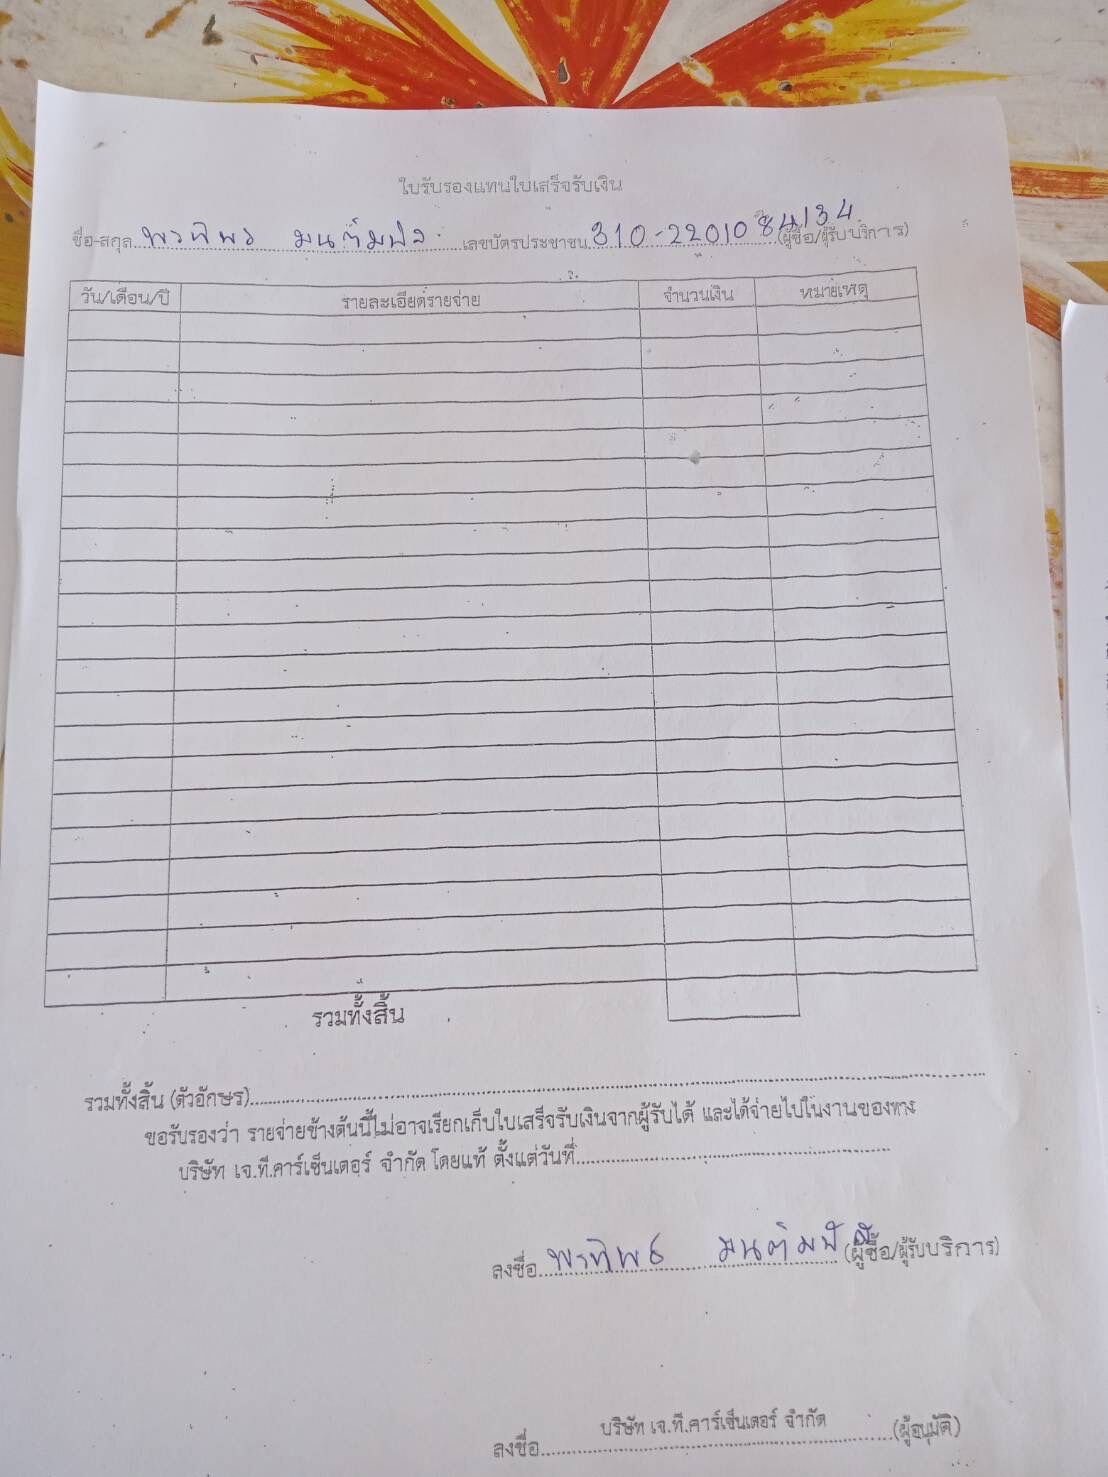 ใบรับรองแทนใบเสร็จรับเงิน
ชื่อ-สกุล เลขบัตรประชาชน 310-2201084134 (ผู้ซื้อ/ผู้รับบริการ)
วัน/เดือน/ปี รายละเอียดรายจ่าย จำนวนเงิน หมายเหตุ
รวมทั้งสิ้น
รวมทั้งสิ้น (ตัวอักษร)
ขอรับรองว่า รายจ่ายข้างต้นนี้ไม่อาจเรียกเก็บใบเสร็จรับเงินจากผู้รับได้ และได้จ่ายไปในงานของทาง
บริษัท เจ.ที.คาร์เซ็นเตอร์ จำกัด โดยแท้ ตั้งแต่วันที่
ลงชื่อ (ผู้ซื้อ/ผู้รับบริการ)
บริษัท เจ.ที.คาร์เซ็นเตอร์ จำกัด
ลงชื่อ (ผู้อนุมัติ)